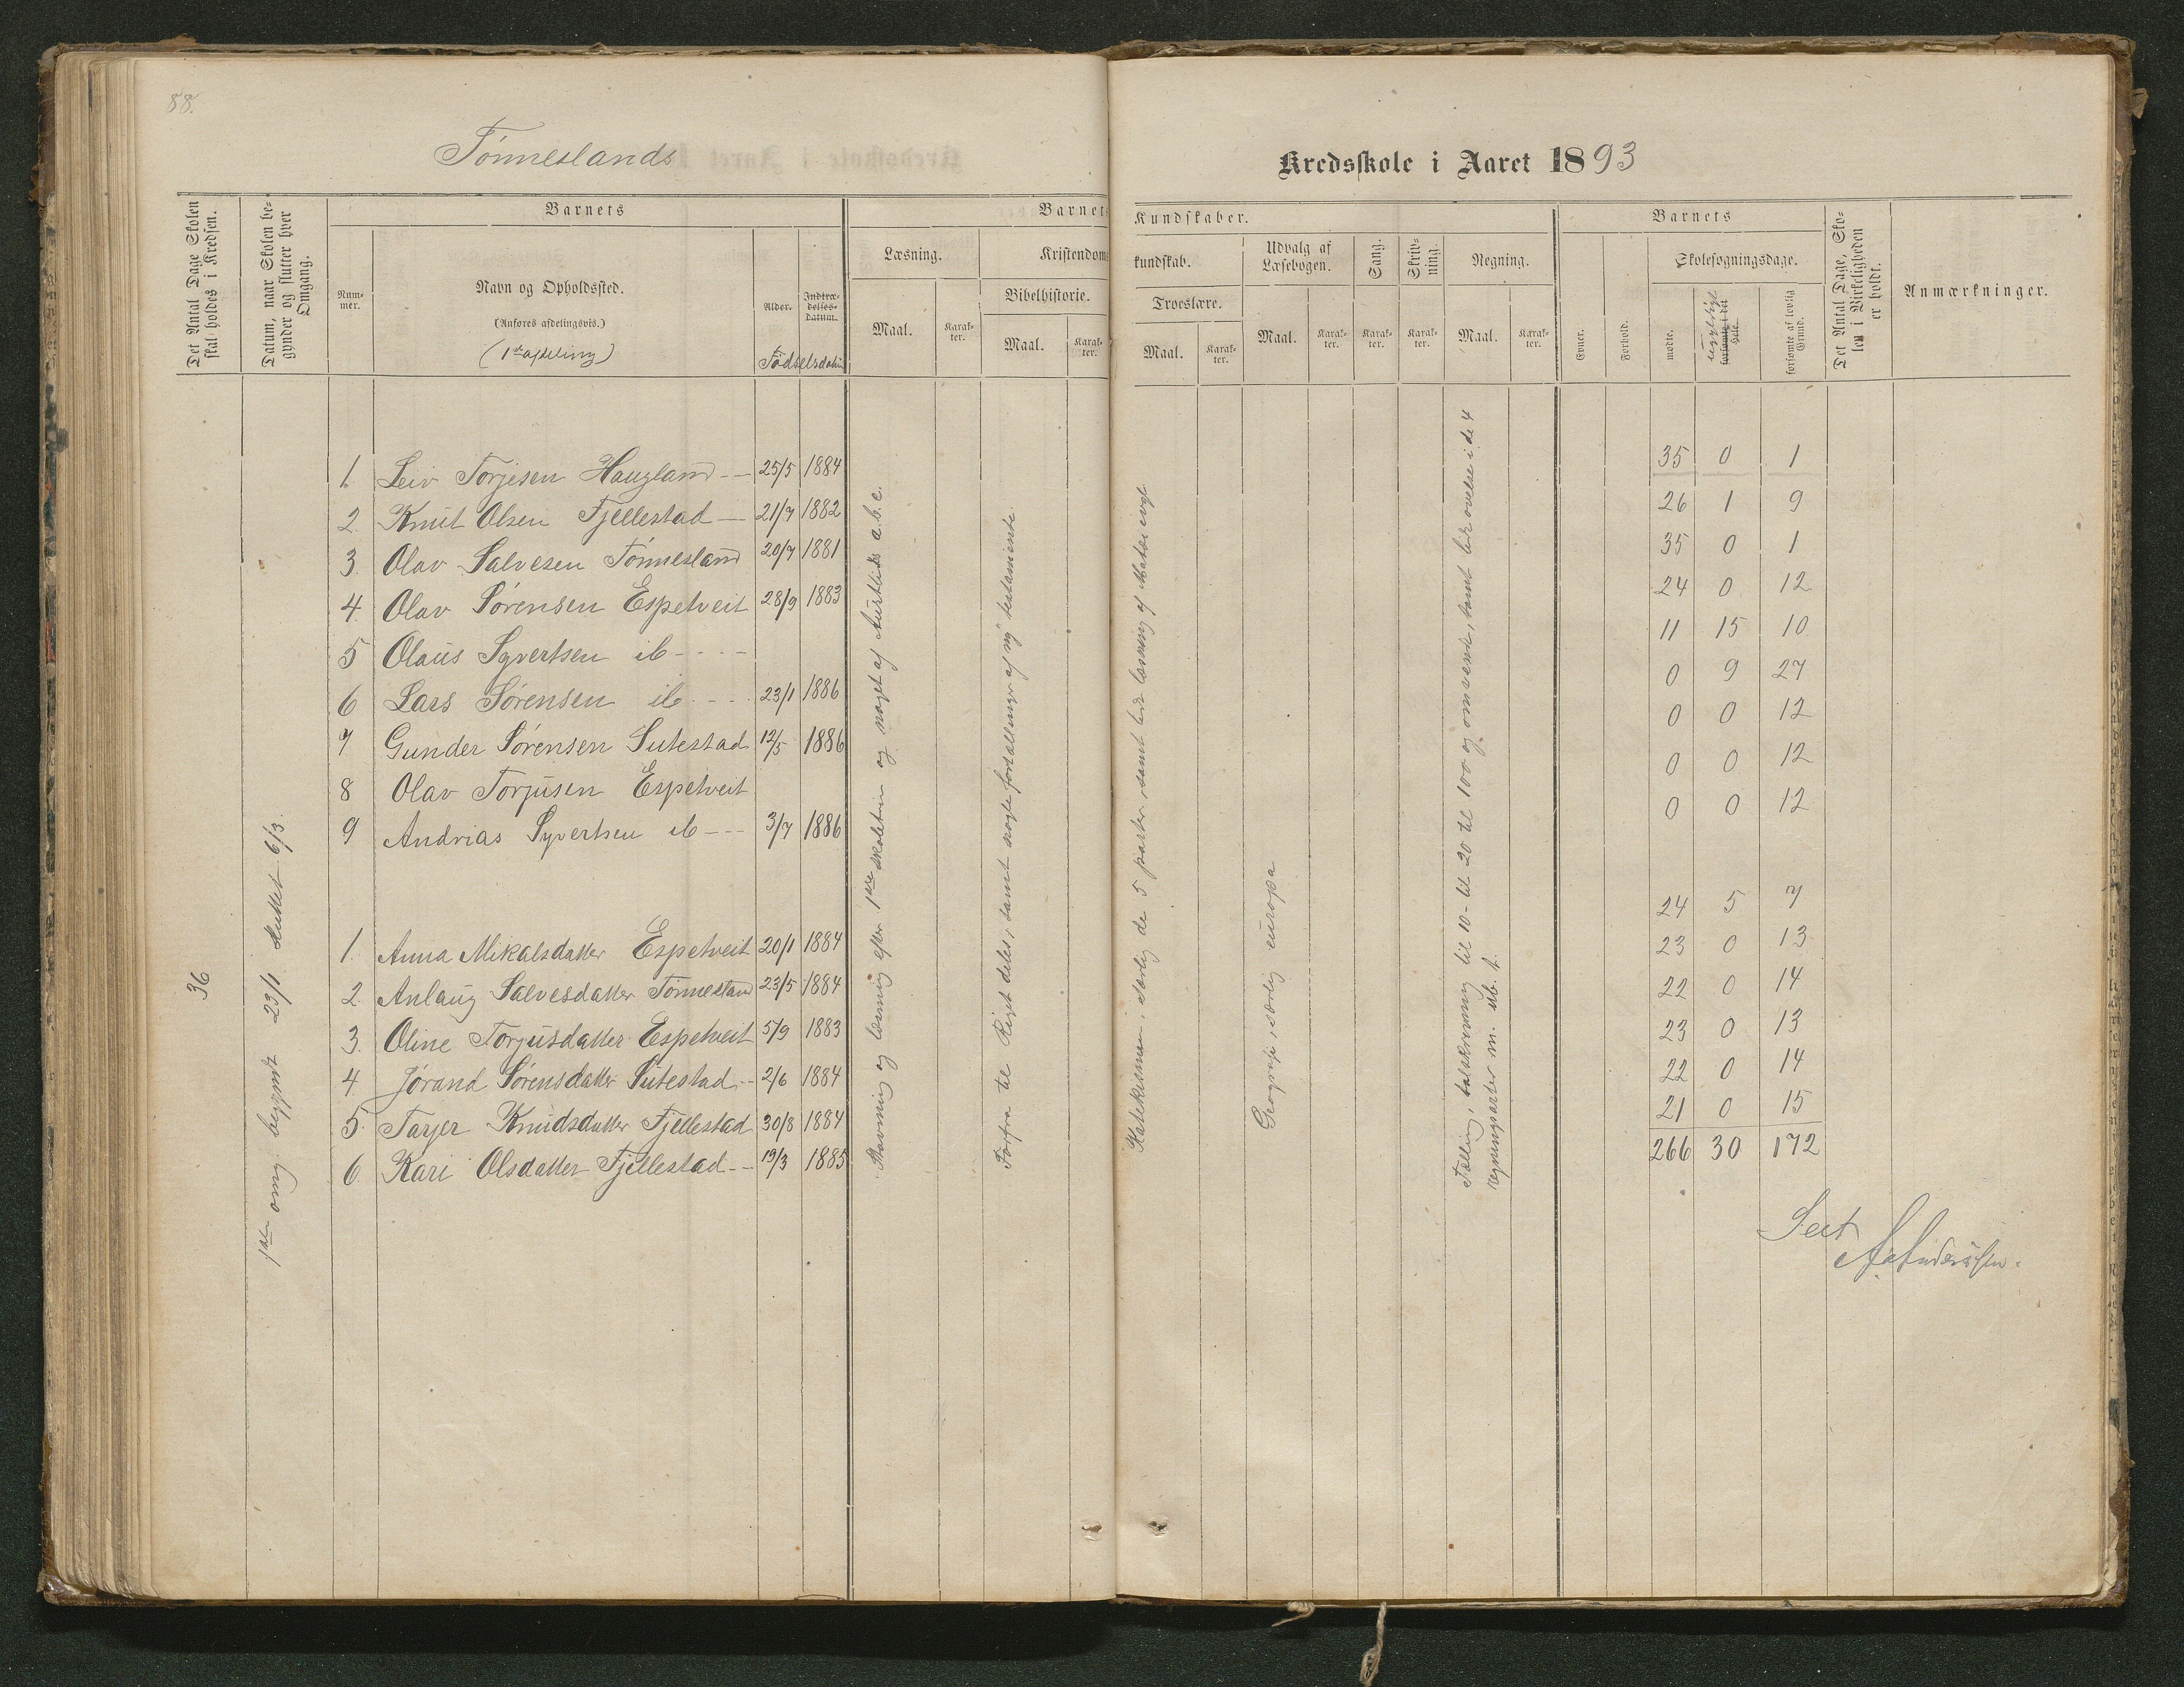 88.
Tönneslands
Kredsskole i Aaret 1893
Det Antal Dage Skolen skal holdes i Kredsen.
Datum, naar Skolen begynder og slutter hver Omgang.
Barnets
Nummer.
Navn og Opholdssted.
(Anføres afdelingsvis.)
(1ste afdeling)
Alder.
Indtrædelses-datum.
Födselsdatum
Barnets
Læsning.
Maal.
Karakter.
Kristendoms
Bibelhistorie.
Maal.
Karakter.
Kundskaber.
kundskab.
Troeslære.
Maal.
Karakter.
Udvalg af Læsebogen.
Maal.
Karakter.
Sang.
Karakter.
Skrivning.
Karakter.
Regning.
Maal.
Karakter.
Barnets
Evner.
Forhold.
Skolesøgningsdage.
mødte.
forsømte i det Hele.
ugyldigt
forsømte af lovlig Grund.
Det Antal Dage, Skolen i Virkeligheden er holdt.
Anmærkninger.
36
1ste omg. begyndt 23/1 sluttet 6/3.
1. Leiv Torjesen Haugland -- 25/5 1884 35 0 1
2. Knut Olsen Fjellestad — 21/7 1882 26 1 9
3. Olav Salvesen Tönnesland 20/7 1881 35 0 1
4. Olav Sörensen Espetveit 28/9 1883 24 0 12
5 Olaus Syvertsen ib - - - - 11 15 10
6 Lars Sörensen ib. - - - 23/1 1886 0 9 27
7 Gunder Sörensen Sutestad 12/5 1886 0 0 12
8 Olav Torjusen Espetveit 0 0 12
9 Andrias Syvertsen ib --- 3/7 1886 0 0 12
1. Anna Mikalsdatter Espetveit 20/1 1884 24 5 7
2. Anlaug Salvesdatter Tönnesland 23/5 1884 23 0 13
3. Oline Torjusdatter Espetveit 5/9 1883 22 0 14
4. Jörand Sörensdatter Sutestad -- 2/6 1884 23 0 13
5. Tarjer Knudsdatter Fjellestad 30/8 1884 22 0 14
6. Kari Olsdatter Fjellestad -- 19/3 1885 21 0 15
266 30 172
Stavning og læsning efter 1ste skoletrin og noget af Austlids a.b.c.
Forfra til Riget deles, samt nogle fortællinger af ny testamente.
Katekismen, særlig de 5 parter, samt lidt læsning af
Geografi, særlig europa
Tælling, talskrivning til 10 - til 20 til 100 og omvendt, samt lidt övelse i de 4
regningsarter m. ub. t.
Seet